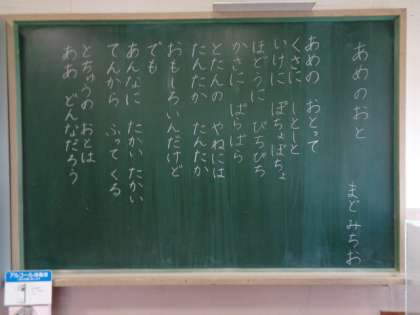 あめのおと
まど みちお
あめの おとって
くさに しとしと
いけに ぽちょぽちょ
ほどうに ぴちぴち
かさに ぱらぱら
とたんの やねには
たんたか たんたか
おもしろいんだけど
でも
あんなに たかい たかい
てんから ふって くる
とちゅうの おとは
ああ どんなだろう
アルコール消毒液